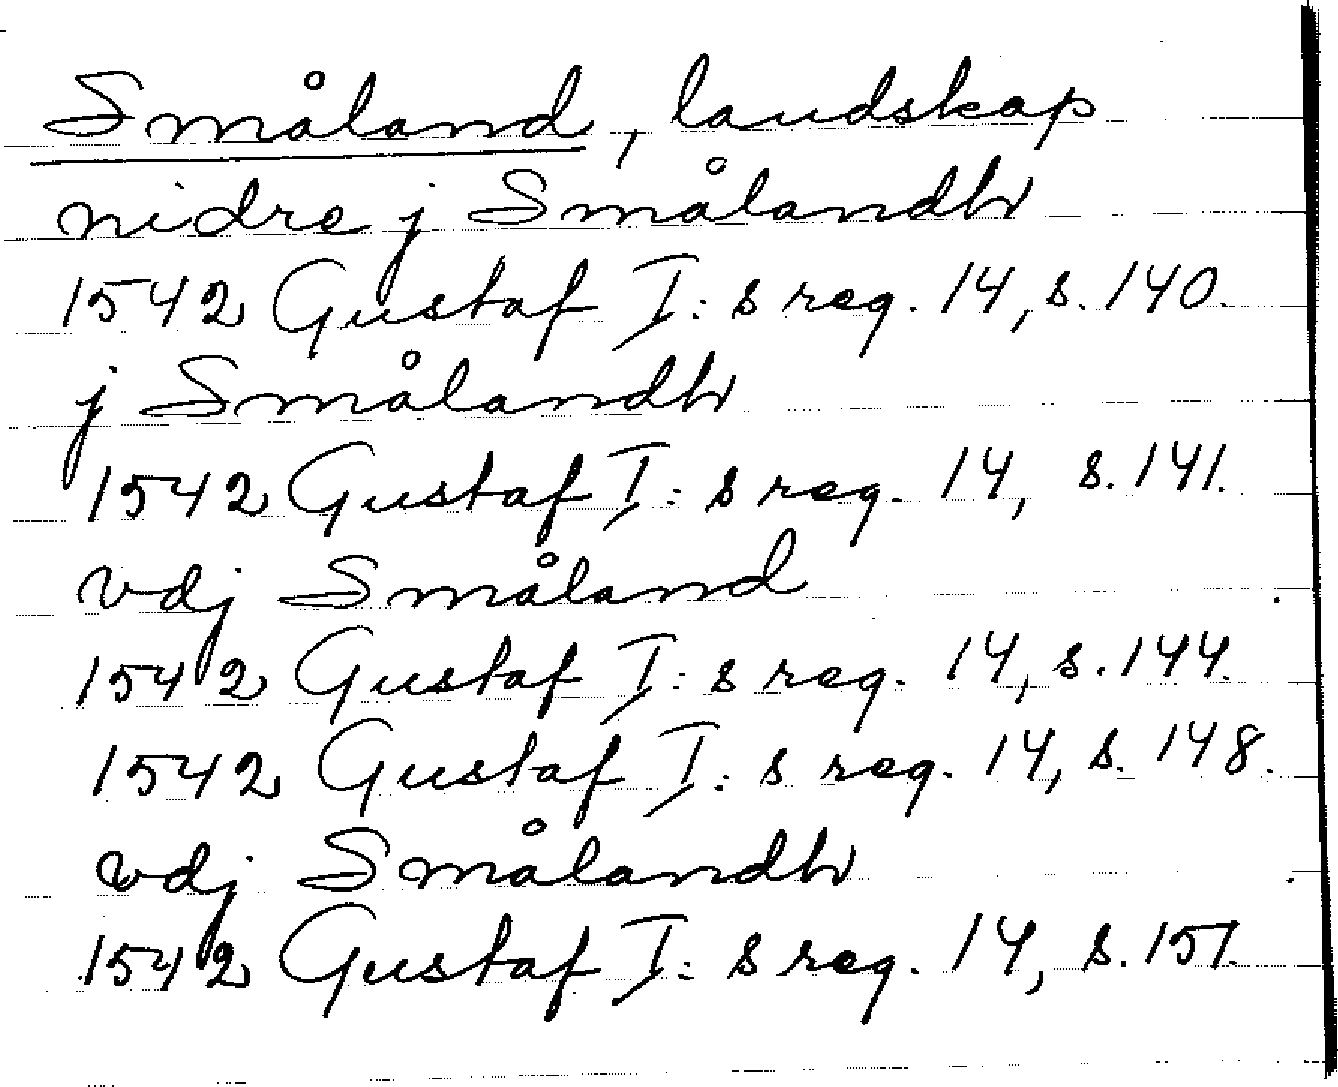 Småland, landskap
nidre j Smålandh
1542 Gustaf I:s reg. 14, s. 140.
j Smålandh
1542 Gustaf I:s reg. 14, s. 141.
vdj Småland
1542 Gustaf I:s reg. 14, s. 144.
1542 Gustaf I:s reg. 14, s. 148.
vdj Smålandh
1542 Gustaf I:s reg. 14, s. 151.